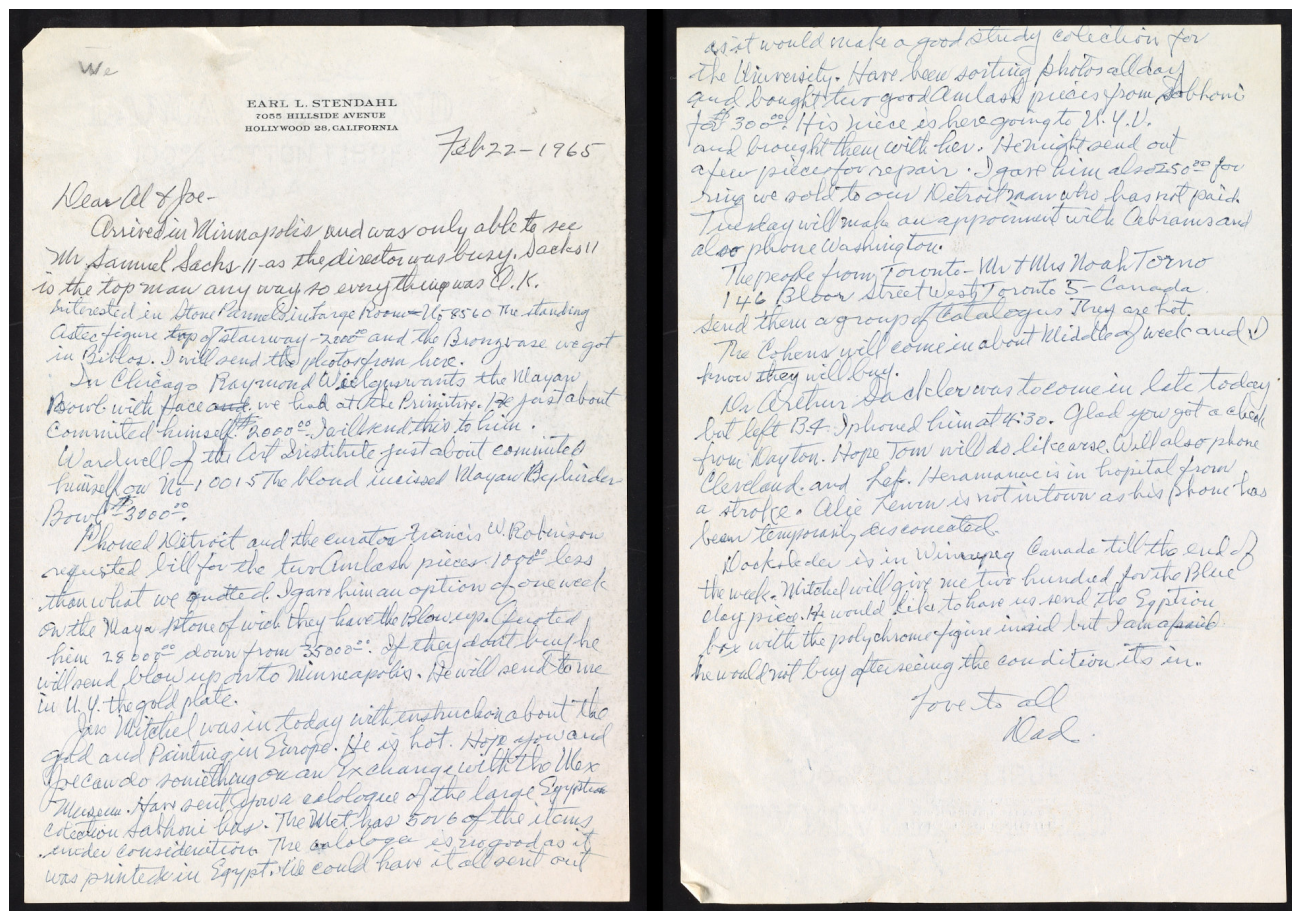 We
EARL L. STENDAHL
7055 HILLSIDE AVENUE
HOLLYWOOD 28, CALIFORNIA
Feb 22-1965
Dear Al & Joe-
Arrived in Minnapolis and was only able to see
Mr. Samuel Sachs 11-as the director was busy. Sachs 11
is the top man any way so everything was O.K.
Interested in Stone Pannels in Large Room-No 8560 The standing
Astec figure top of stairway-2000⁰⁰ and the Bronz vase we got
in Biblos. I will send the photos from here.
In Chicago Raymond Wielgus wants the Mayan
Bowl with face and we had at the Primitive. He just about
committed himself. $2000⁰⁰. I will send this to him.
Wardwell of the Art Institute just about committed
himself on No 10015 The blond incissed Mayan
Bowl $3000⁰⁰.
Phoned Detroit and the curator Francis W. Robinson
requsted bill for the two Amlash pieces. 1000⁰⁰ less
than what we quoted. I gave him an option of one week
on the Maya stone of wich they have the Blow ups. Quoted
him 28000⁰⁰ down from 35000⁰⁰. If they don't buy he
will send blow up on to Minneapolis. He will send to me
in N.Y. the gold plate.
Jan Mitchel was in today with instruction about the
gold and Painting in Europe. He is hot. Hope you and
Joe can do something on an Exchange with the Mex
Museum. Have sent you a catologue of the large Egyption
colection Sabhoni has. The Met has 5 or 6 of the items
under consideration. The cataloge is no good as it
was printed in Egypt. We could have it all sent out
as it would make a good study colection for
the University. Have been sorting photos all day
and bought two good Amlash pieces from Sabhoni
for $300⁰⁰. His niece is here going to N.Y.U.
and brought them with her. He might send out
a few pieces for repair. I gave him also 250⁰⁰ for
ring we sold to our Detroit man who has not paid.
Tuesday will make an appoinment with Abrams and
also phone Washington.
The people from Toronto-Mr & Mrs Noah Torno
146 Bloor Street West, Toronto 5-Canada
send them a group of Catalogus They are hot.
The Cohens will come in about Middle of week and I
know they will buy.
Dr Arthur Sackler was to come in late today.
but left B.4. I phoned him at 4:30. Glad you got a check
from Dayton. Hope Tom will do likewise. Will also phone
Cleveland. and Hef. Heramanec is in hopital from
a stroke. Alie Lewin is not in town as his phone has
been temporaily disconeated.
Dockstader is in Winnepeg Canada till the end of
the week. Mitchel will give me two hundred for the Blue
clay piece. He would like to have us send the Egption
box with the polychrome figure insid but I am afraid
he would not buy after seeing the condition its in.
Love to all
Dad.